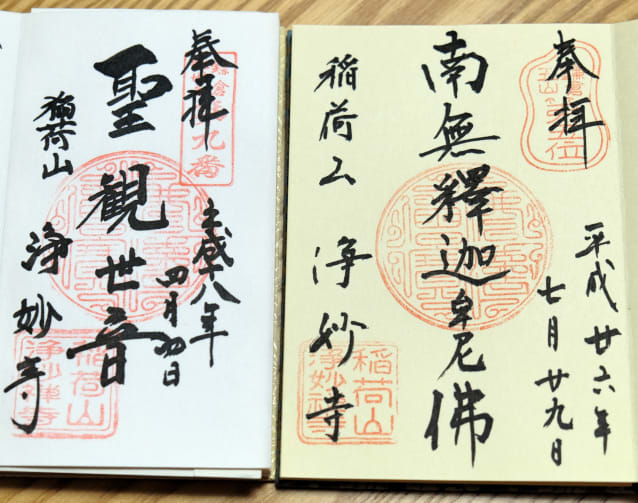 奉拝
鎌倉
五山第五位
平成廿六年
七月廿九日
南無釋迦牟尼佛
稲荷山 浄妙寺
稲荷山
浄妙禅寺
奉拝
鎌倉
第九番
平成十八年
四月 日
聖観世音
稲荷山 浄妙寺
稲荷山
浄妙禅寺